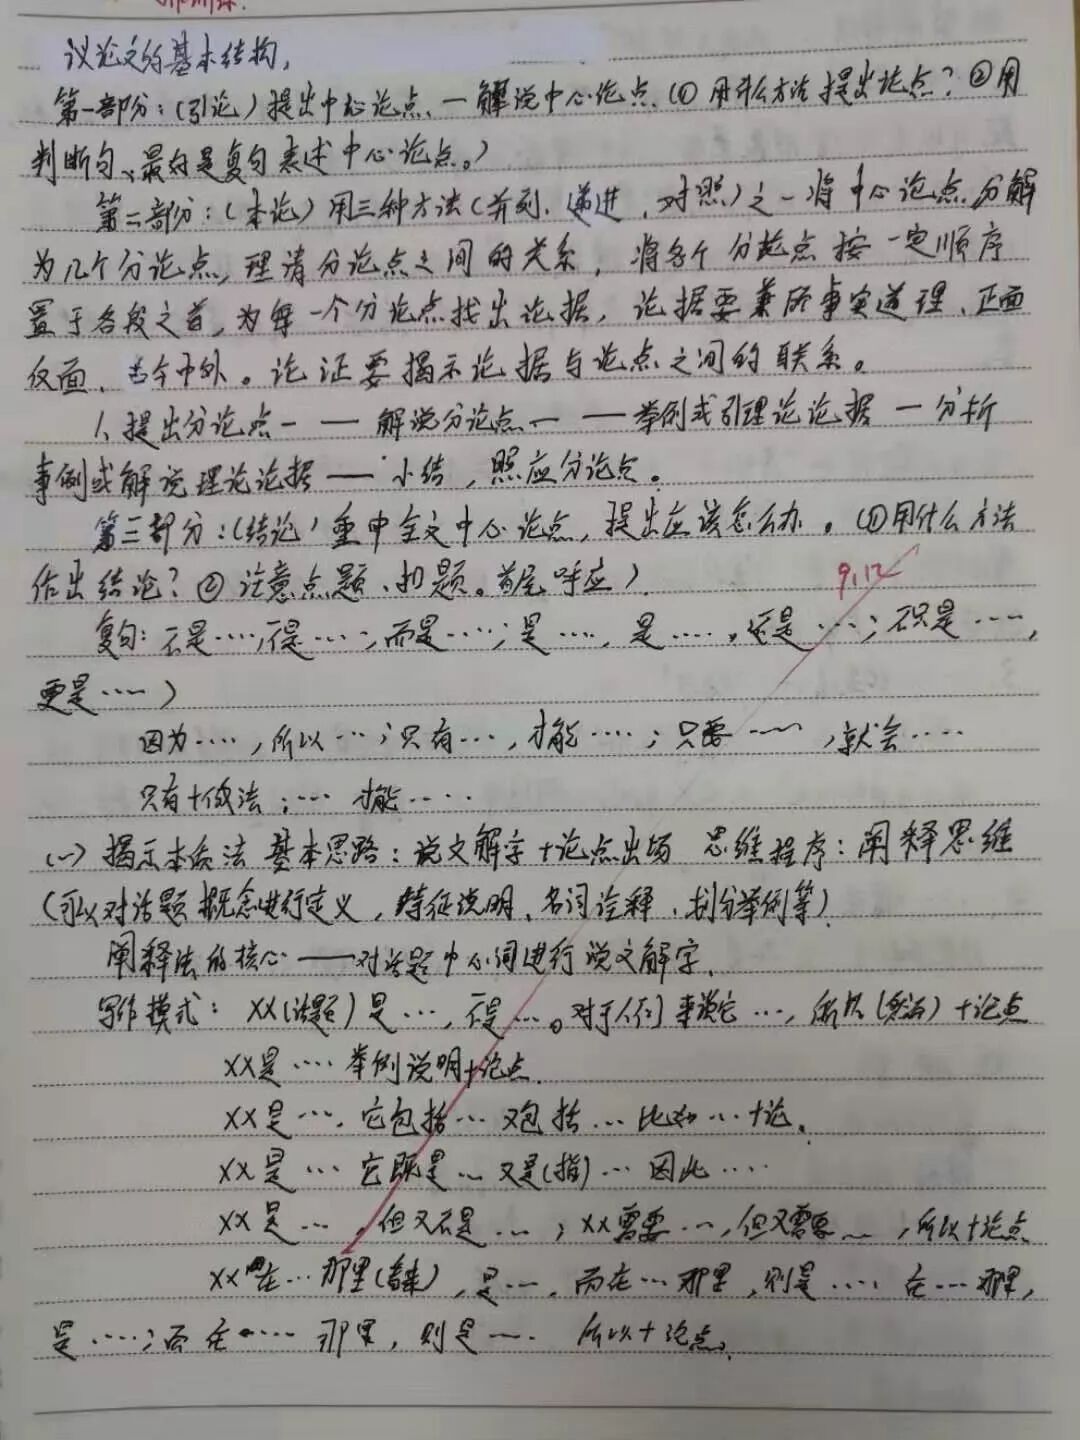 议论文的基本结构,
第一部分:(引论)提出中心论点、一解说中心论点、(①用什么方法提出论点?②用
判断句、最好是复句表述中心论点。)
第二部分:(本论)用三种方法(并列、递进、对照)之一将中心论点分解
为几个分论点,理清分论点之间的关系,将各个分论点按一定顺序
置于各段之首,为每一个分论点找出论据,论据要兼所事实道理、正面
反面、古今中外。论证要揭示论据与论点之间的联系。
1、提出分论点一——解说分论点一——举例或引理论论据一分析
事例或解说理论论据——小结,照应分论点。
第三部分:(结论)重申全文中心论点,提出应该怎么办。(①用什么方法
作出结论?②注意点题、扣题。首尾呼应)
9.12
复句:不是……,不是……,而是……;是……,是……,还是……;不只是……,
更是……)
因为……,所以…;只有…,才能……;只要……,就会……
只有+做法;…才能……
(一)揭示本质法 基本思路:说文解字+论点出场 思维程序:阐释思维
(可以对话题概念进行定义,特征说明、名词诠释、划分举例等)
阐释法的核心——对话题中心词进行说文解字、
写作模式:XX(话题)是…,不是…。对于人们来说它…,所以(然后)+论点
XX是……举例说明+论点、
XX是…,它包括…又包括…比如…+论、
XX是…它既是…又是(指)…因此……
XX是…,但又不是…;XX需要…,但又需要…,所以+论点
XX在…那里(看来),是…,而在…那里,则是……在…那里,
是……;而在……那里,则是……所以+论点。